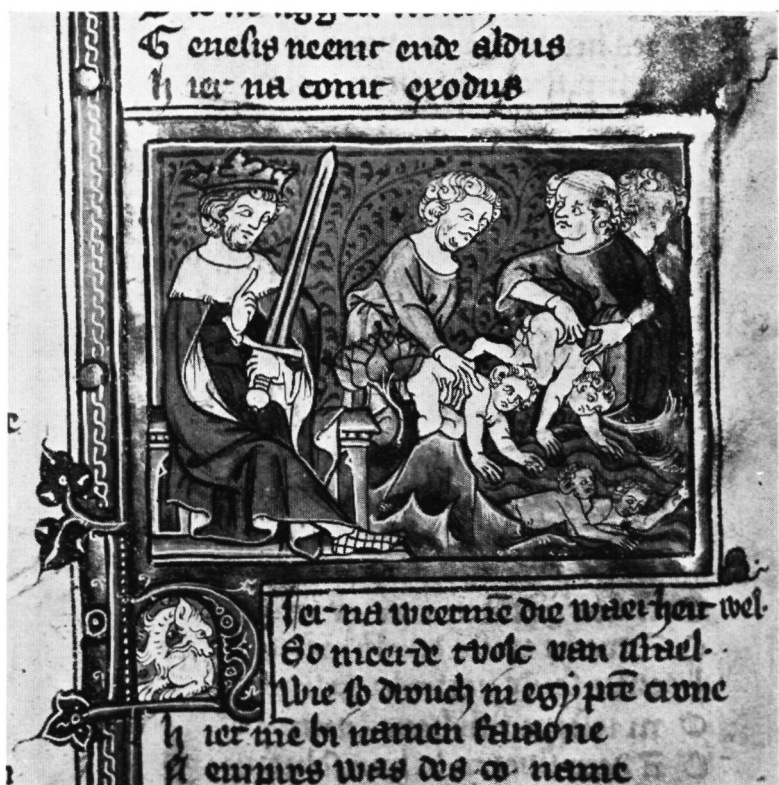 Genesis neemt ende aldus
hier na comt exodus
Hier na weetmē die waerheit wel.
So meerde tvolc van israel.
Wie so drouch in egyptē crone
hiet mē bi namen faraone
was des co name